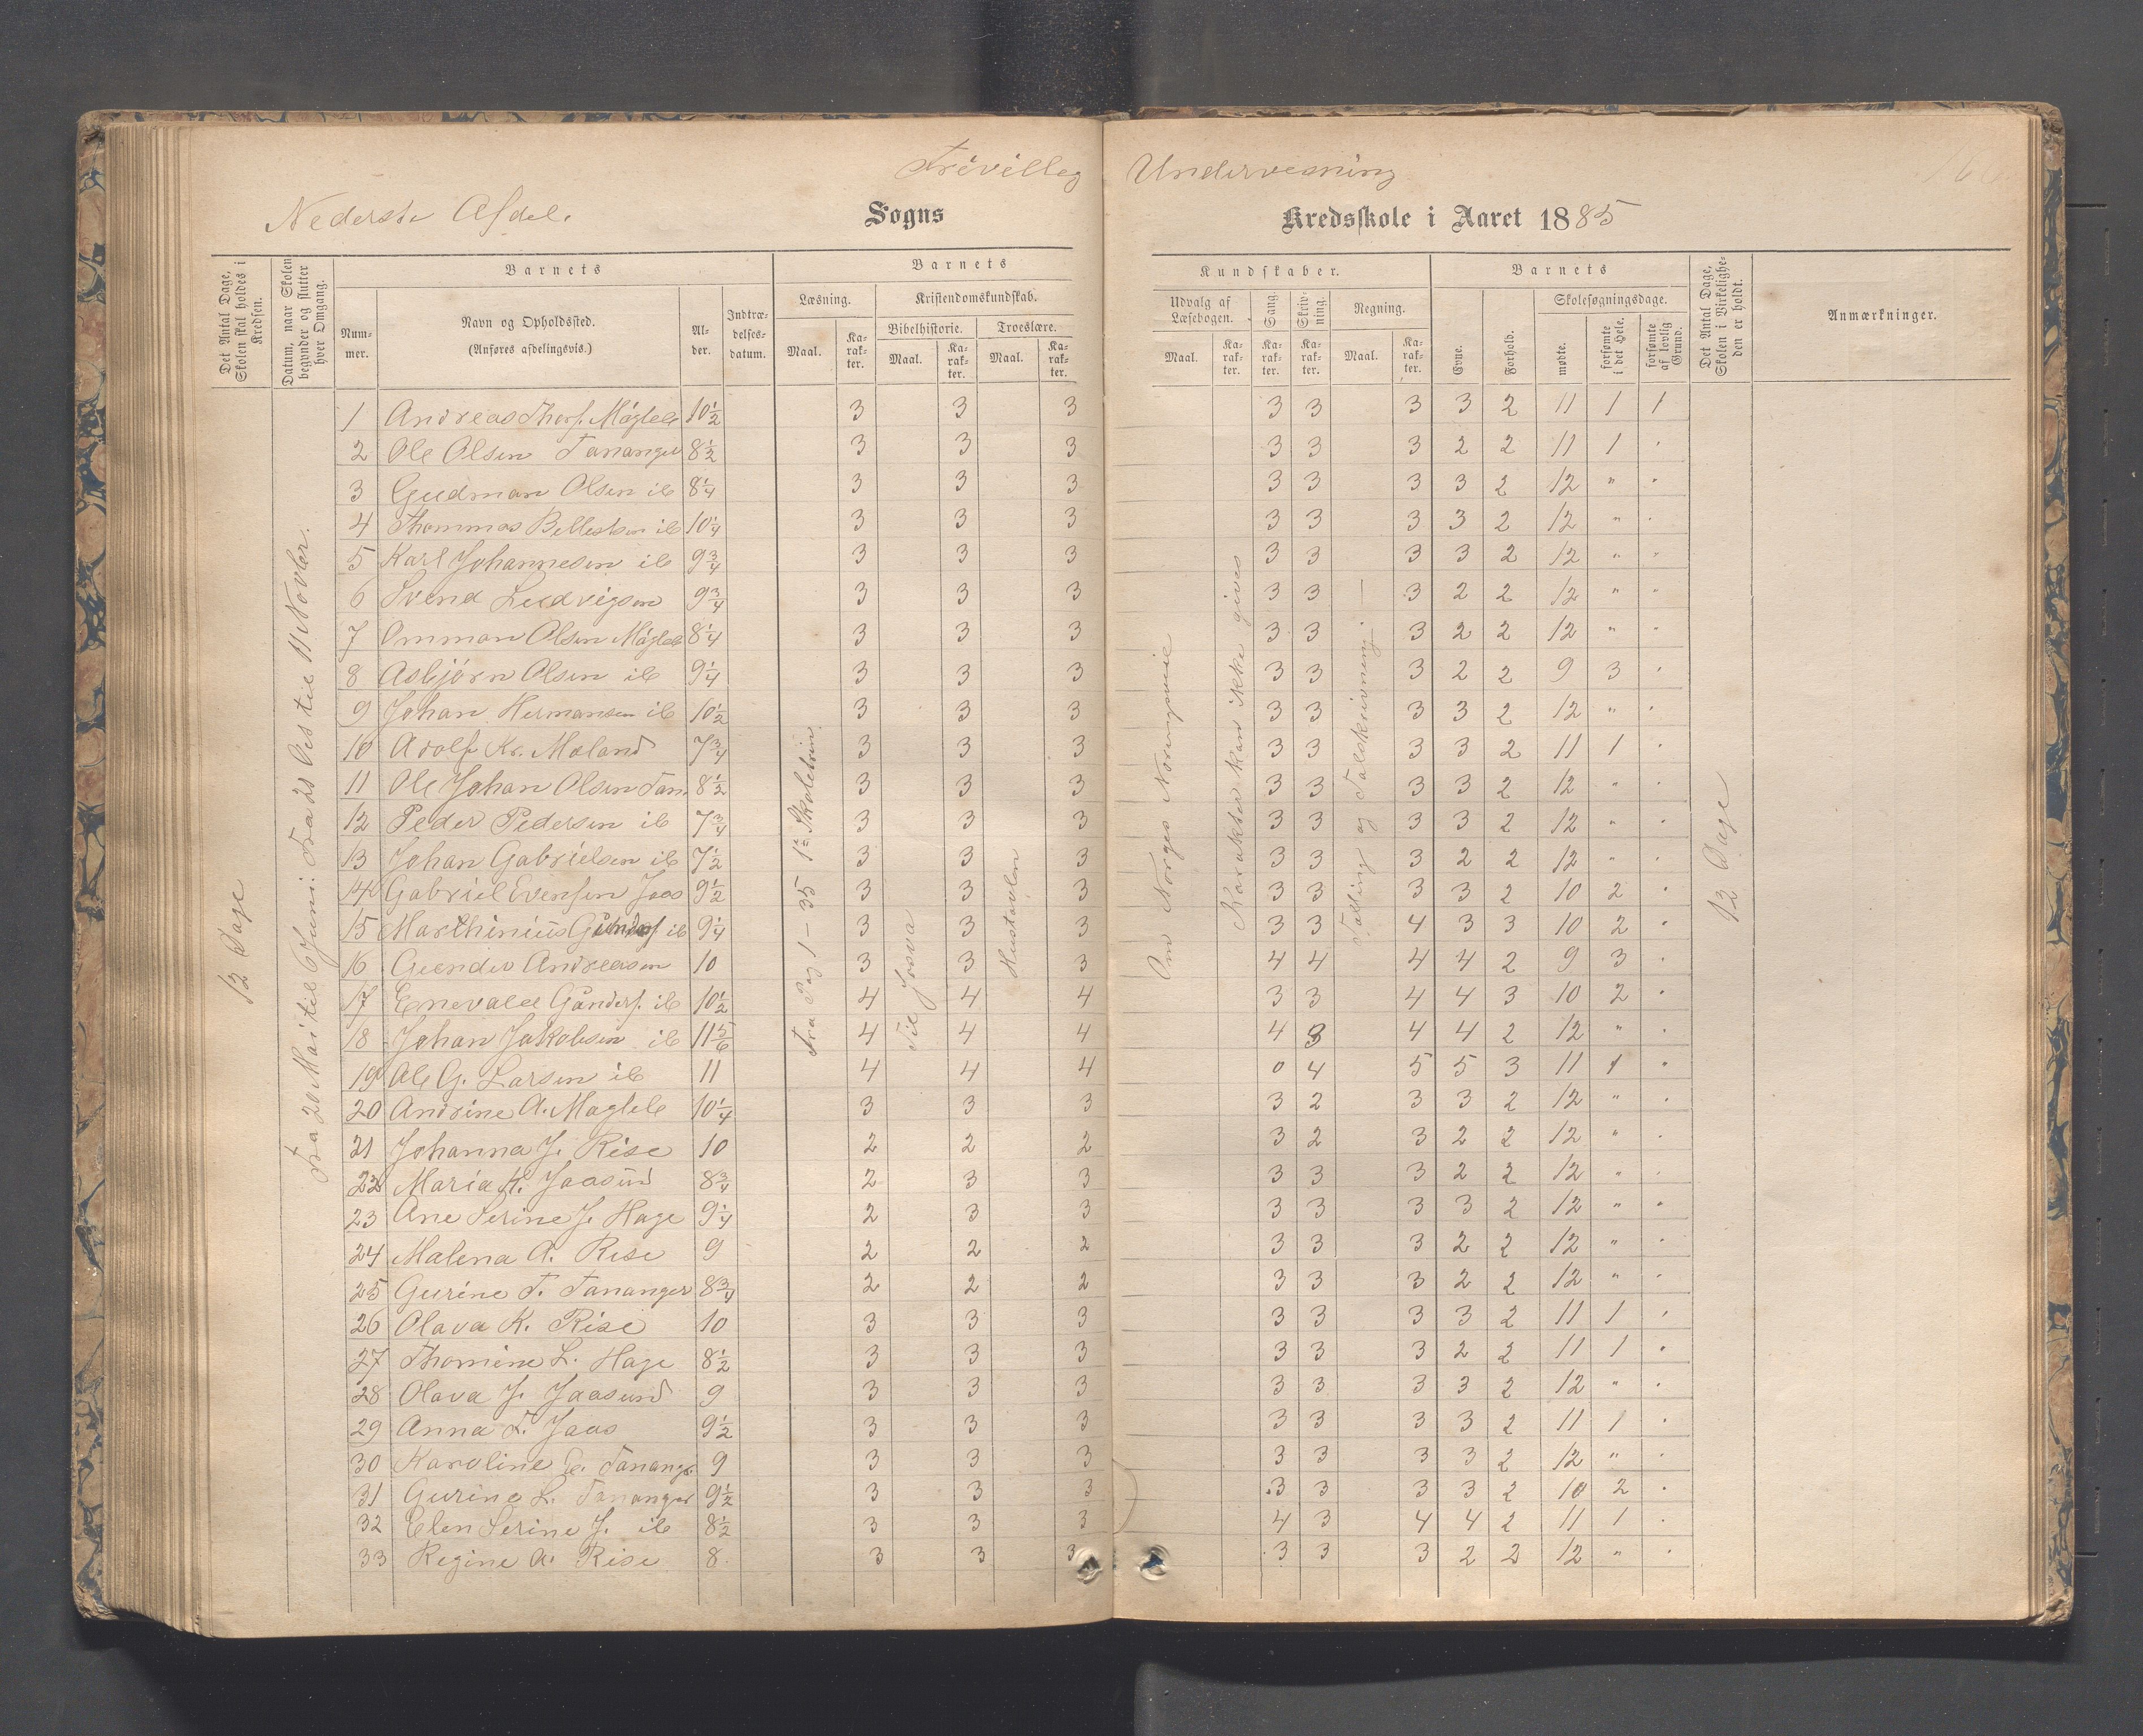 Frivilleg Undervisning
Nederste Afdel. Sogns Kredsskole i Aaret 1885
Det Antal Dage, Skolen skal holdes i Kredsen.
Datum, naar Skolen begynder og slutter hver Omgang.
Barnets
Num-mer.
Navn og Opholdssted.
(Anføres afdelingsvis.)
Al-der.
Indtræ-delses-datum.
Barnets Kundskaber.
Læsning.
Maal. Ka-rak-ter.
Kristendomskundskab.
Bibelhistorie. Troeslære.
Maal. Ka-rak-ter. Maal. Ka-rak-ter.
Udvalg af Læsebogen.
Maal. Ka-rak-ter.
Sang. Ka-rak-ter.
Skriv-ning. Ka-rak-ter.
Regning.
Maal. Ka-rak-ter.
Barnets
Evne. Forhold.
Skolesøgningsdage.
mødte. forsømte i det Hele. forsømte af lovlig Grund.
Det Antal Dage, Skolen i Virkelighe-den er holdt.
Anmærkninger.
12 Dage
Fra 20 Mai til 6 Juni. Fra 28 Oct til 11 Novbr.
Fra Pag 1 - 35 1ste Skoletrin
Til Josva
Hustavlen
Karakter kan ikke gives
Talling og Talskrivning
12 Dage
1 Andreas Thorf. Mågleb 10 1/2 3 3 3 3 3 3 3 2 11 1 1
2 Ole Olsen Tananger 8 1/2 3 3 3 3 3 3 2 2 11 1 "
3 Gudman Olsen ib 8 1/4 3 3 3 3 3 3 3 2 12 " "
4 Thommas Bellestsen ib 10 1/4 3 3 3 3 3 3 3 2 12 " "
5 Karl Johannesen ib 9 3/4 3 3 3 3 3 3 3 2 12 " "
6 Svend Ludvigsen 9 3/4 3 3 3 3 3 3 2 2 12 " "
7 Omman Olsen Mågleb 8 1/4 3 3 3 3 3 3 2 2 12 " "
8 Asbjørn Olsen ib 9 1/4 3 3 3 3 3 3 2 2 9 3 "
9 Johan Hermansen ib 10 1/2 3 3 3 3 3 3 3 2 12 " "
10 Adolf Kr. Meland 7 3/4 3 3 3 3 3 3 3 2 11 1 "
11 Ole Johan Olsen Tan. 8 1/2 3 3 3 3 3 3 3 2 12 " "
12 Peder Pedersen ib 7 3/4 3 3 3 3 3 3 3 2 12 " "
13 Johan Gabrielsen ib 7 1/2 3 3 3 3 3 3 2 2 12 " "
14 Gabriel Evensen Jaas 9 1/2 3 3 3 3 3 3 3 2 10 2 "
15 Marthinius Gundersf ib 9 1/4 3 3 3 3 3 4 3 3 10 2 "
16 Gunder Andreasen 10 3 3 3 4 4 4 4 2 9 3 "
17 Enevald Gundersf. ib 10 1/2 4 4 4 3 3 4 4 3 10 2 "
18 Johan Jakobsen ib 11 5/6 4 4 4 4 3 4 4 2 12 " "
19 Ole G. Larsen ib 11 4 4 4 0 4 5 5 3 11 1 "
20 Andrine A. Magleb 10 1/4 3 3 3 3 2 3 3 2 12 " "
21 Johanna J. Rise 10 2 2 2 3 2 3 2 2 12 " "
22 Maria H. Jaasund 8 3/4 2 3 3 3 3 3 2 2 12 " "
23 Ane Serine J. Hage 9 1/4 2 3 3 3 3 3 3 2 12 " "
24 Malena A. Rise 9 2 2 2 3 3 3 2 2 12 " "
25 Gurine T. Tananger 8 3/4 2 2 2 3 3 3 2 2 12 " "
26 Olava K. Rise 10 3 3 3 3 3 3 3 2 11 1 "
27 Thomine L. Hage 8 1/2 3 3 3 3 3 3 2 2 11 1 "
28 Olava J. Jaasund 9 3 3 3 3 3 3 3 2 12 " "
29 Anna T. Jaas 9 1/2 3 3 3 3 3 3 3 2 11 1 "
30 Karoline E. Tanang. 9 3 3 3 3 3 3 3 2 12 " "
31 Gurine L. Tananger 9 1/2 3 3 3 3 3 3 3 2 10 2 "
32 Elen Serine J. ib 8 1/2 3 3 3 4 3 4 4 2 11 1 "
33 Regine K. Rise 8 3 3 3 3 3 3 2 2 12 " "